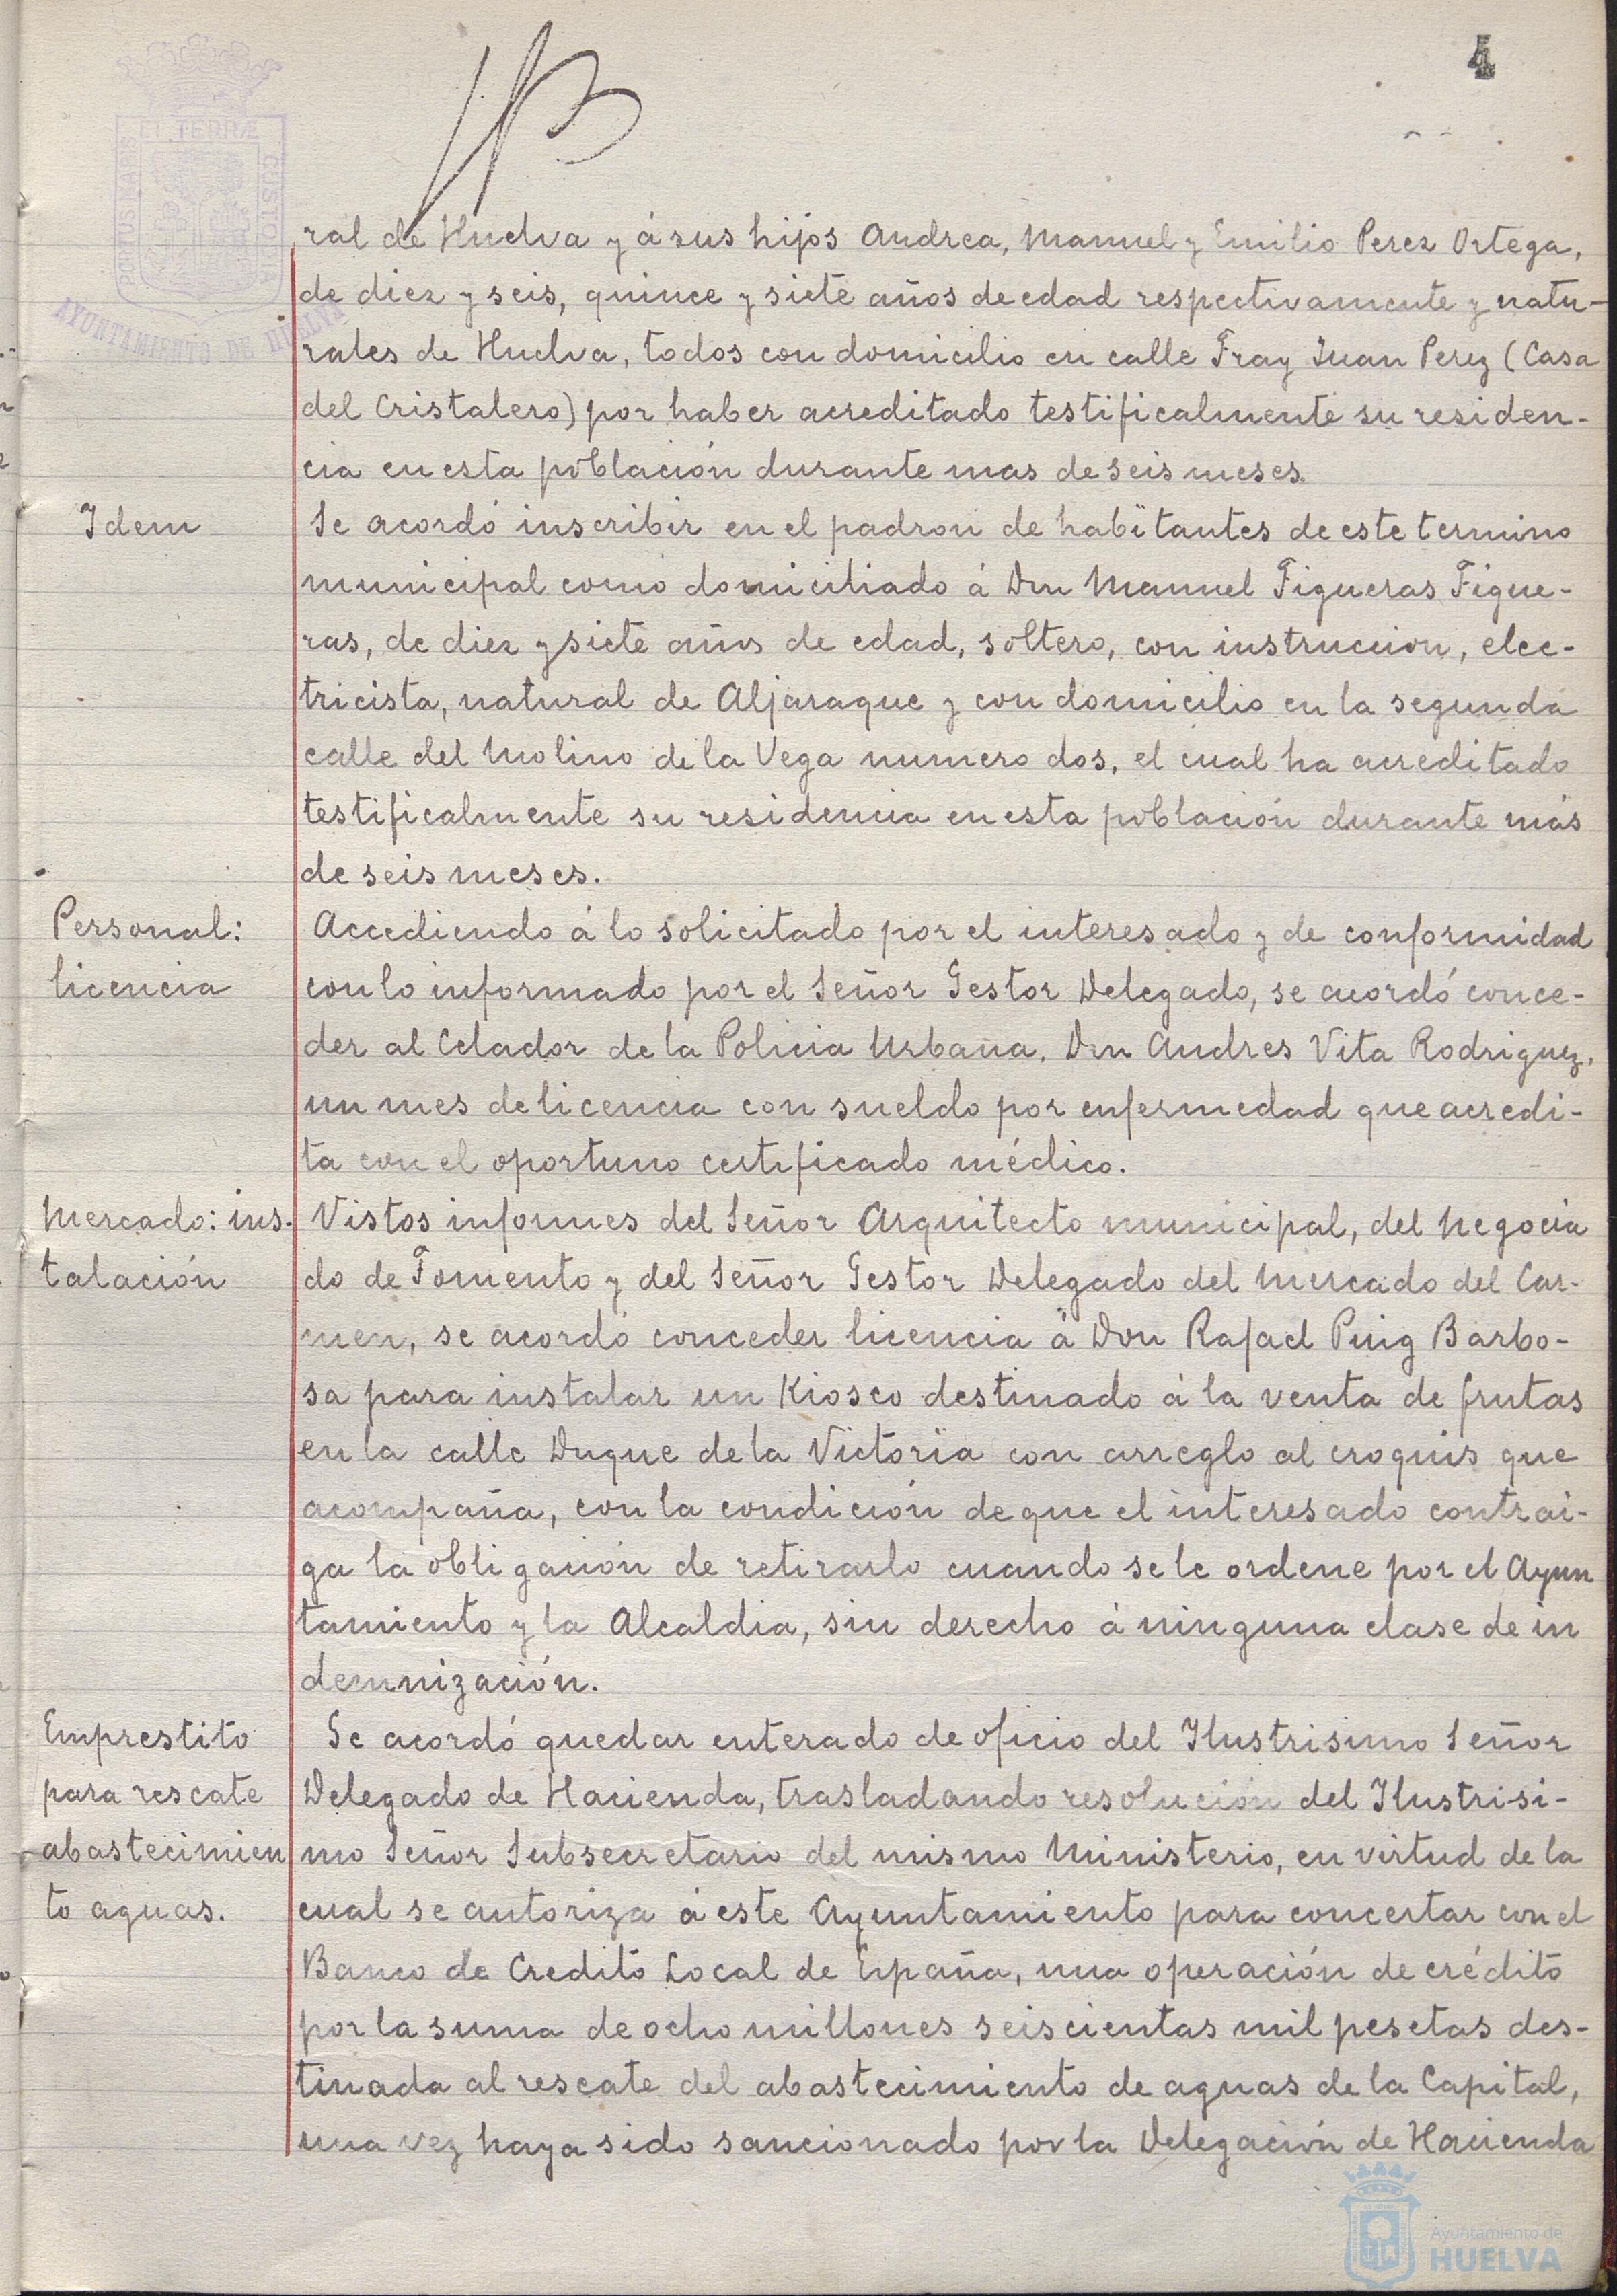 4
PORTUS MARIS ET TERRÆ CUSTODIA
AYUNTAMIENTO DE HUELVA
ral de Huelva y á sus hijos Andrea, Manuel y Emilio Perez Ortega,
de diez y seis, quince y siete años de edad respectivamente y natu-
rales de Huelva, todos con domicilio en calle Fray Juan Perez (Casa
del Cristalero) por haber acreditado testificalmente su residen-
cia en esta población durante mas de seis meses.
Idem
Se acordó inscribir en el padron de habitantes de este termino
municipal como domiciliado á Don Manuel Figueras Figue-
ras, de diez y siete años de edad, soltero, con instruccion, elec-
tricista, natural de Aljaraque y con domicilio en la segunda
calle del Molino de la Vega numero dos, el cual ha acreditado
testificalmente su residencia en esta población durante más
de seis meses.
Personal:
licencia
Accediendo á lo solicitado por el interesado y de conformidad
con lo informado por el Señor Gestor Delegado, se acordó conce-
der al Celador de la Policia Urbana, Don Andres Vita Rodriguez,
un mes de licencia con sueldo por enfermedad que acredi-
ta con el oportuno certificado médico.
Mercado: ins-
talación
Vistos informes del Señor Arquitecto municipal, del Negocia
do de Fomento y del Señor Gestor Delegado del Mercado del Car-
men, se acordó conceder licencia á Don Rafael Puig Barbo-
sa para instalar un Kiosco destinado á la venta de frutas
en la calle Duque de la Victoria con arreglo al croquis que
acompaña, con la condición de que el interesado contrai-
ga la obligación de retirarlo cuando se le ordene por el Ayun
tamiento y la Alcaldia, sin derecho á ninguna clase de in
demnización.
Emprestito
para rescate
abastecimien
to aguas.
Se acordó quedar enterado de oficio del Ilustrisimo Señor
Delegado de Hacienda, trasladando resolución del Ilustrisi-
mo Señor Subsecretario del mismo Ministerio, en virtud de la
cual se autoriza á este Ayuntamiento para concertar con el
Banco de Credito Local de España, una operación de crédito
por la suma de ocho millones seiscientas mil pesetas des-
tinada al rescate del abastecimiento de aguas de la Capital,
una vez haya sido sancionado por la Delegación de Hacienda
Ayuntamiento de
HUELVA